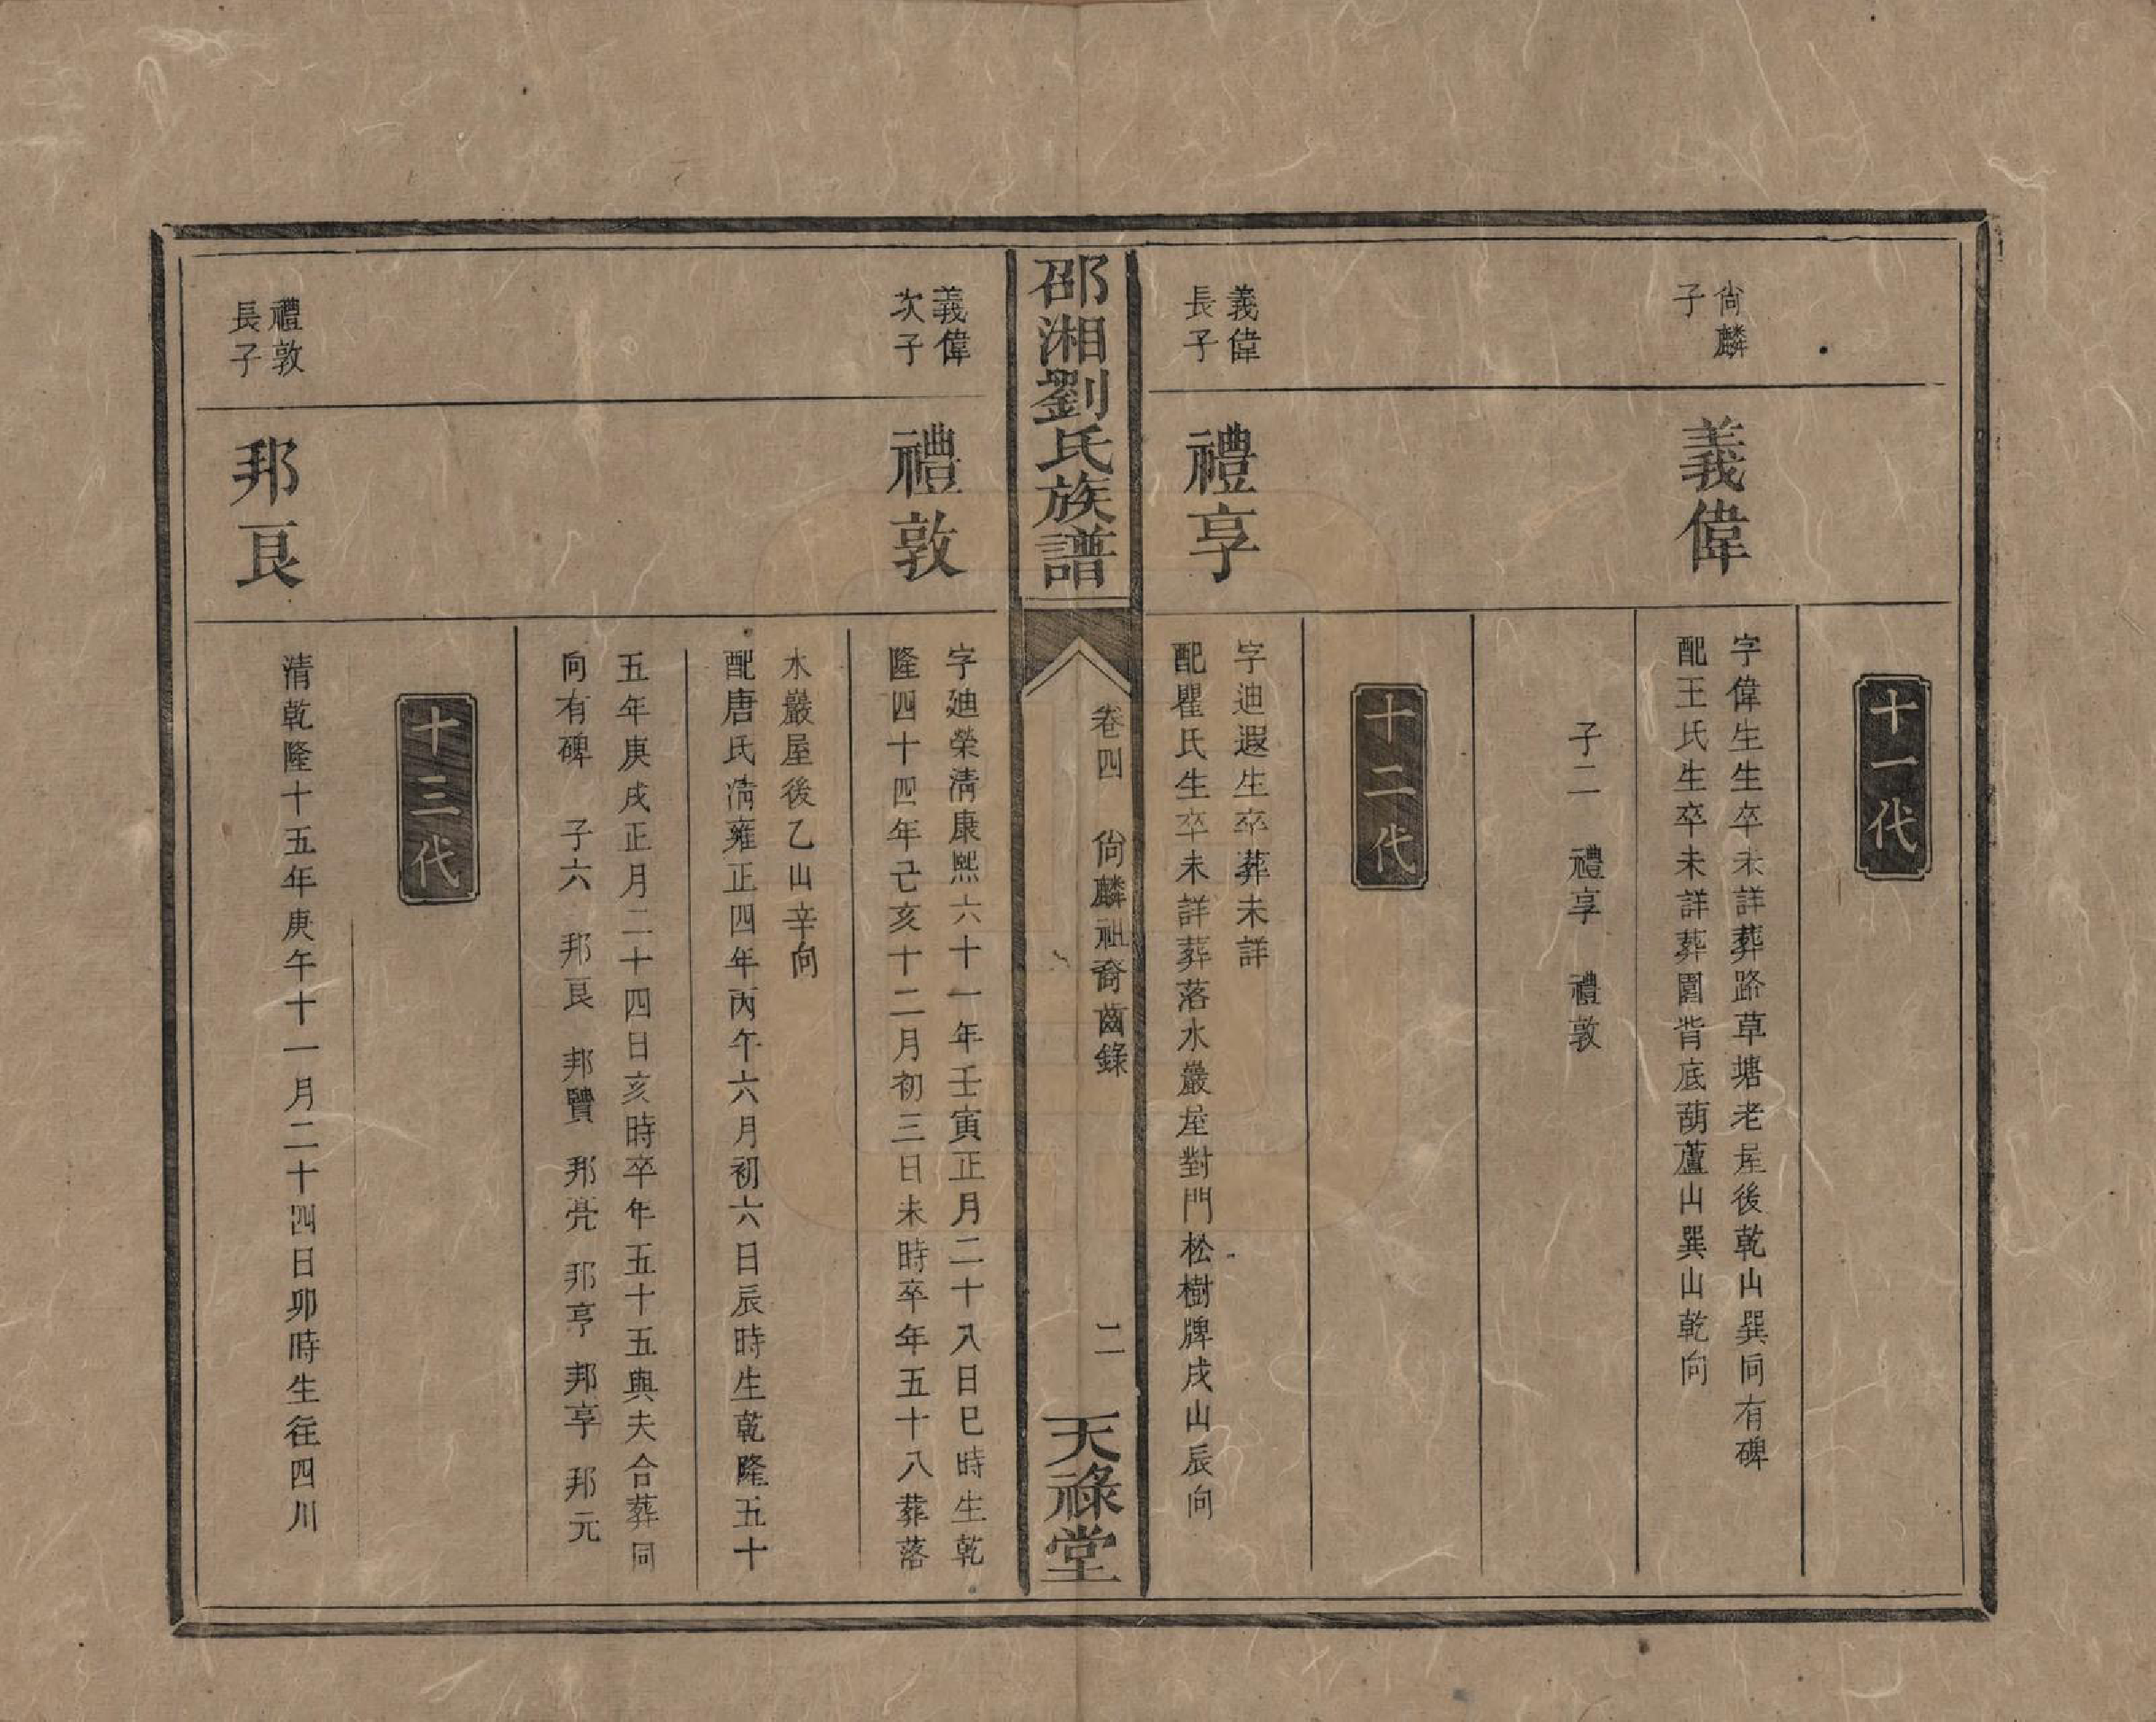 十一代
尙麟
子
義偉
字偉生生卒未詳葬路草塘老屋後乾山巽向有碑
配王氏生卒未詳葬園背底葫蘆山巽山乾向
子二　禮享　禮敦
十二代
義偉
長子
禮享
字迪遐生卒葬未詳
配瞿氏生卒未詳葬落水巖屋對門松樹牌戌山辰向
邵湘劉氏族譜
卷四　尙麟祖裔齒錄
二
天祿堂
義偉
次子
禮敦
字廸榮淸康熙六十一年壬寅正月二十八日巳時生乾
隆四十四年己亥十二月初三日未時卒年五十八葬落
水巖屋後乙山辛向
配唐氏淸雍正四年丙午六月初六日辰時生乾隆五十
五年庚戌正月二十四日亥時卒年五十五與夫合葬同
向有碑　子六　邦良　邦贊　邦亮　邦亨　邦享　邦元
十三代
禮敦
長子
邦良
清乾隆十五年庚午十一月二十四日卯時生徃四川